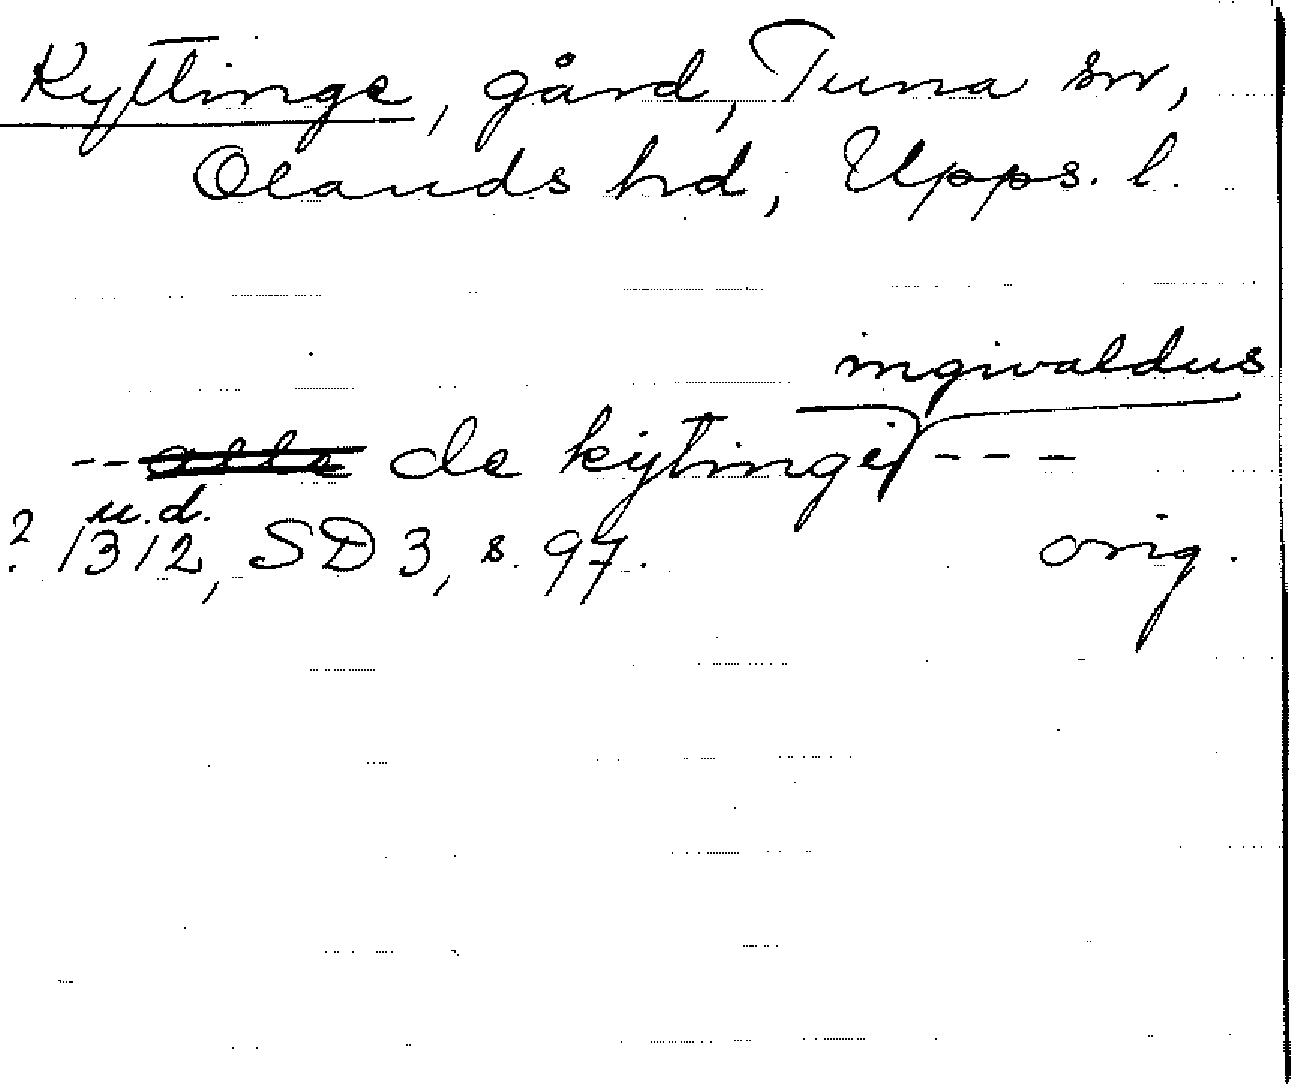 Kyttinge, gård, Tuna sn,
Olands hd, Upps. l.
ingivaldus
-- de kytinge ---
u.d.
? 1312, SD 3, s. 97. orig.